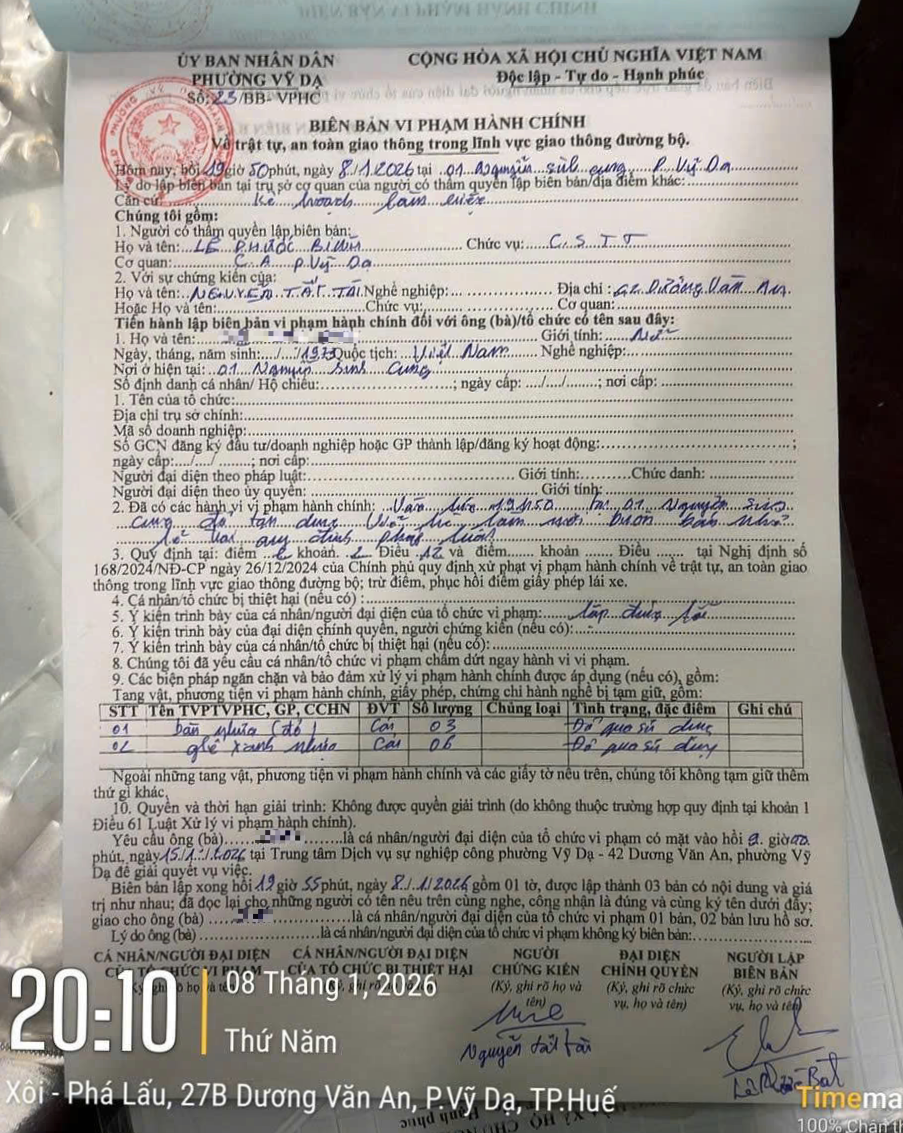 ỦY BAN NHÂN DÂN
PHƯỜNG VỸ DẠ
Số: 23/BB-VPHC
CỘNG HÒA XÃ HỘI CHỦ NGHĨA VIỆT NAM
Độc lập - Tự do - Hạnh phúc
BIÊN BẢN VI PHẠM HÀNH CHÍNH
Về trật tự, an toàn giao thông trong lĩnh vực giao thông đường bộ.
Hôm nay, hồi 19 giờ 50 phút, ngày 8/1/2026 tại 01 Nguyễn Sinh Cung, P. Vỹ Dạ
Lý do lập biên bản tại trụ sở cơ quan của người có thẩm quyền lập biên bản/địa điểm khác:
Căn cứ Kế hoạch làm việc
Chúng tôi gồm:
1. Người có thẩm quyền lập biên bản:
Họ và tên: LÊ PHƯỚC Chức vụ: C.S.T.T
Cơ quan: C.A P. Vỹ Dạ
2. Với sự chứng kiến của:
Họ và tên: NGUYỄN TẤT TÀI Nghề nghiệp: Địa chỉ: 42 Dương Văn An
Hoặc Họ và tên: Chức vụ: Cơ quan:
Tiến hành lập biên bản vi phạm hành chính đối với ông (bà)/tổ chức có tên sau đây:
1. Họ và tên: Giới tính: Nữ
Ngày, tháng, năm sinh: .../.../1973 Quốc tịch: Việt Nam Nghề nghiệp:
Nơi ở hiện tại: 01 Nguyễn Sinh Cung
Số định danh cá nhân/ Hộ chiếu: ; ngày cấp: .../.../...; nơi cấp:
1. Tên của tổ chức:
Địa chỉ trụ sở chính:
Mã số doanh nghiệp:
Số GCN đăng ký đầu tư/doanh nghiệp hoặc GP thành lập/đăng ký hoạt động: ;
ngày cấp: .../.../...; nơi cấp:
Người đại diện theo pháp luật: Giới tính: Chức danh:
Người đại diện theo ủy quyền: Giới tính:
2. Đã có các hành vi vi phạm hành chính: Vào lúc 19h50 tại 01 Nguyễn Sinh
Cung đã tận dụng vỉa hè làm nơi buôn bán nhỏ
lẻ trái quy định pháp luật
3. Quy định tại: điểm khoản Điều 12 và điểm khoản Điều tại Nghị định số
168/2024/NĐ-CP ngày 26/12/2024 của Chính phủ quy định xử phạt vi phạm hành chính về trật tự, an toàn giao
thông trong lĩnh vực giao thông đường bộ; trừ điểm, phục hồi điểm giấy phép lái xe.
4. Cá nhân/tổ chức bị thiệt hại (nếu có) :
5. Ý kiến trình bày của cá nhân/người đại diện của tổ chức vi phạm: lập đúng lỗi
6. Ý kiến trình bày của đại diện chính quyền, người chứng kiến (nếu có):
7. Ý kiến trình bày của cá nhân/tổ chức bị thiệt hại (nếu có):
8. Chúng tôi đã yêu cầu cá nhân/tổ chức vi phạm chấm dứt ngay hành vi vi phạm.
9. Các biện pháp ngăn chặn và bảo đảm xử lý vi phạm hành chính được áp dụng (nếu có), gồm:
Tang vật, phương tiện vi phạm hành chính, giấy phép, chứng chỉ hành nghề bị tạm giữ, gồm:
STT Tên TVPTVPHC, GP, CCHN ĐVT Số lượng Chủng loại Tình trạng, đặc điểm Ghi chú
01 bàn nhựa (đỏ) Cái 03 Đã qua sử dụng
02 ghế xanh nhựa Cái 06 Đã qua sử dụng
Ngoài những tang vật, phương tiện vi phạm hành chính và các giấy tờ nêu trên, chúng tôi không tạm giữ thêm
thứ gì khác.
10. Quyền và thời hạn giải trình: Không được quyền giải trình (do không thuộc trường hợp quy định tại khoản 1
Điều 61 Luật Xử lý vi phạm hành chính).
Yêu cầu ông (bà) là cá nhân/người đại diện của tổ chức vi phạm có mặt vào hồi 9 giờ 00
phút, ngày 15/1/2026 tại Trung tâm Dịch vụ sự nghiệp công phường Vỹ Dạ - 42 Dương Văn An, phường Vỹ
Dạ để giải quyết vụ việc.
Biên bản lập xong hồi 19 giờ 55 phút, ngày 8/1/2026 gồm 01 tờ, được lập thành 03 bản có nội dung và giá
trị như nhau; đã đọc lại cho những người có tên nêu trên cùng nghe, công nhận là đúng và cùng ký tên dưới đây;
giao cho ông (bà) là cá nhân/người đại diện của tổ chức vi phạm 01 bản, 02 bản lưu hồ sơ.
Lý do ông (bà) là cá nhân/người đại diện của tổ chức vi phạm không ký biên bản:
CÁ NHÂN/NGƯỜI ĐẠI DIỆN
CỦA TỔ CHỨC VI PHẠM
CÁ NHÂN/NGƯỜI ĐẠI DIỆN
CỦA TỔ CHỨC BỊ THIỆT HẠI
NGƯỜI
CHỨNG KIẾN
(Ký, ghi rõ họ và
tên)
Nguyễn Tất Tài
ĐẠI DIỆN
CHÍNH QUYỀN
(Ký, ghi rõ chức
vụ, họ và tên)
NGƯỜI LẬP
BIÊN BẢN
(Ký, ghi rõ chức
vụ, họ và tên)
20:10
08 Tháng 1, 2026
Thứ Năm
Xôi - Phá Lấu, 27B Dương Văn An, P.Vỹ Dạ, TP.Huế
Timema
100% Chân th